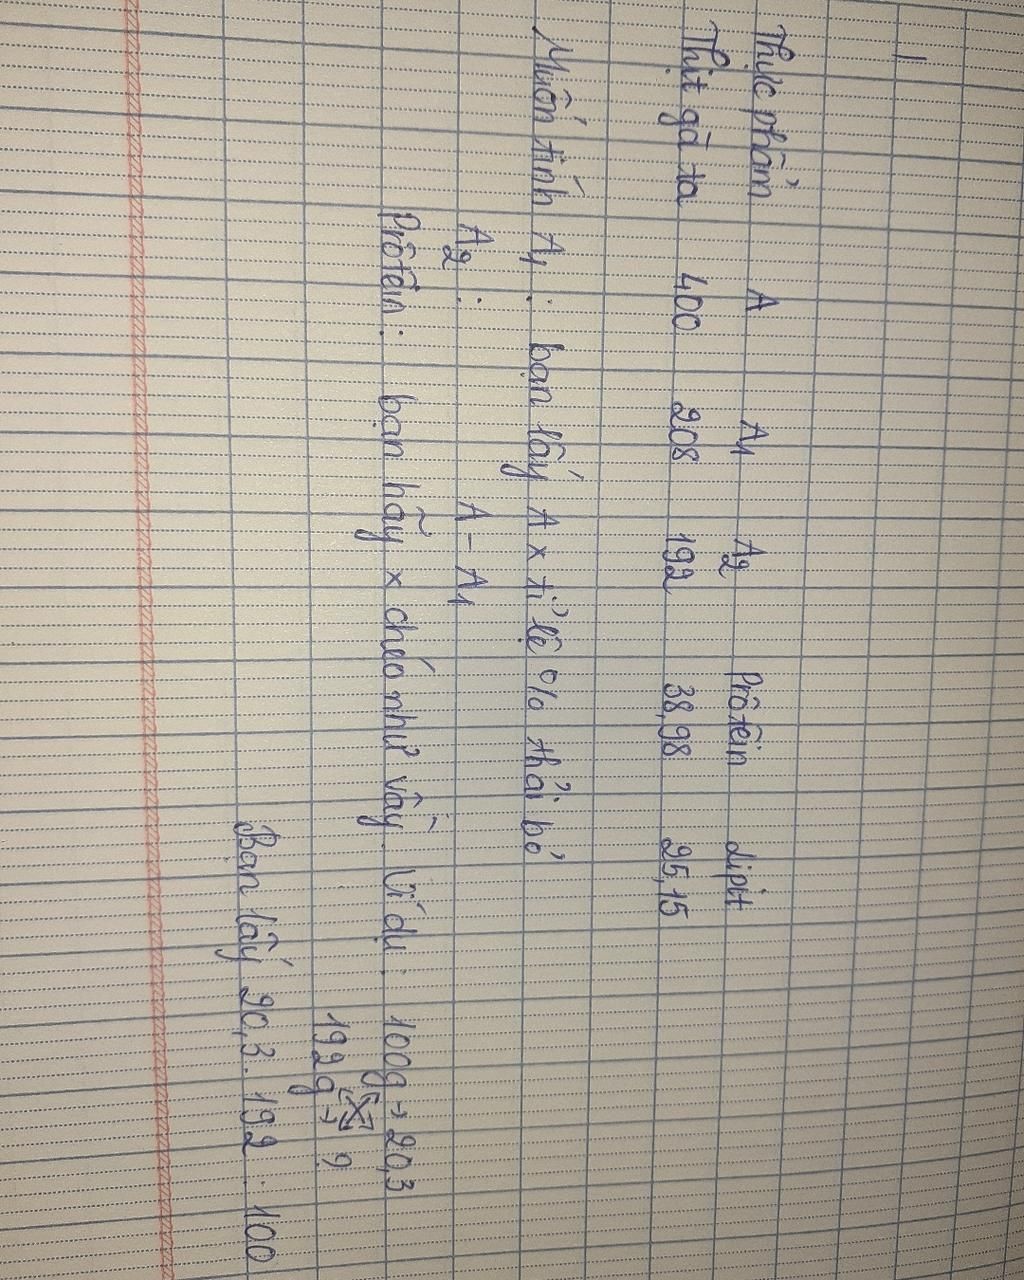 Thực phẩm A A1 A2 Prôtêin Lipit
Thịt gà ta 400 208 192 38,98 25,15
Muốn tính A1 : bạn lấy A x tỉ lệ % thải bỏ
A2 : A - A1
Prôtêin : bạn hãy x chéo như vầy. Ví dụ : 100g → 20,3
192g → ?
Bạn lấy 20,3. 192 : 100